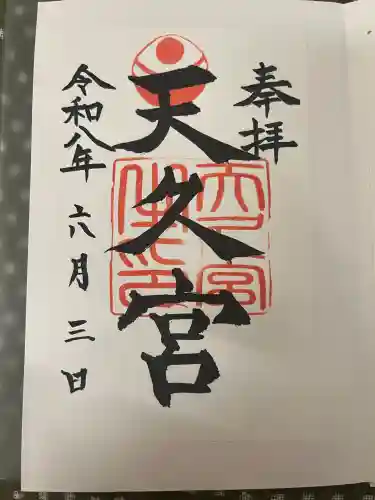 奉拝
天久宮
令和八年 六月 三日